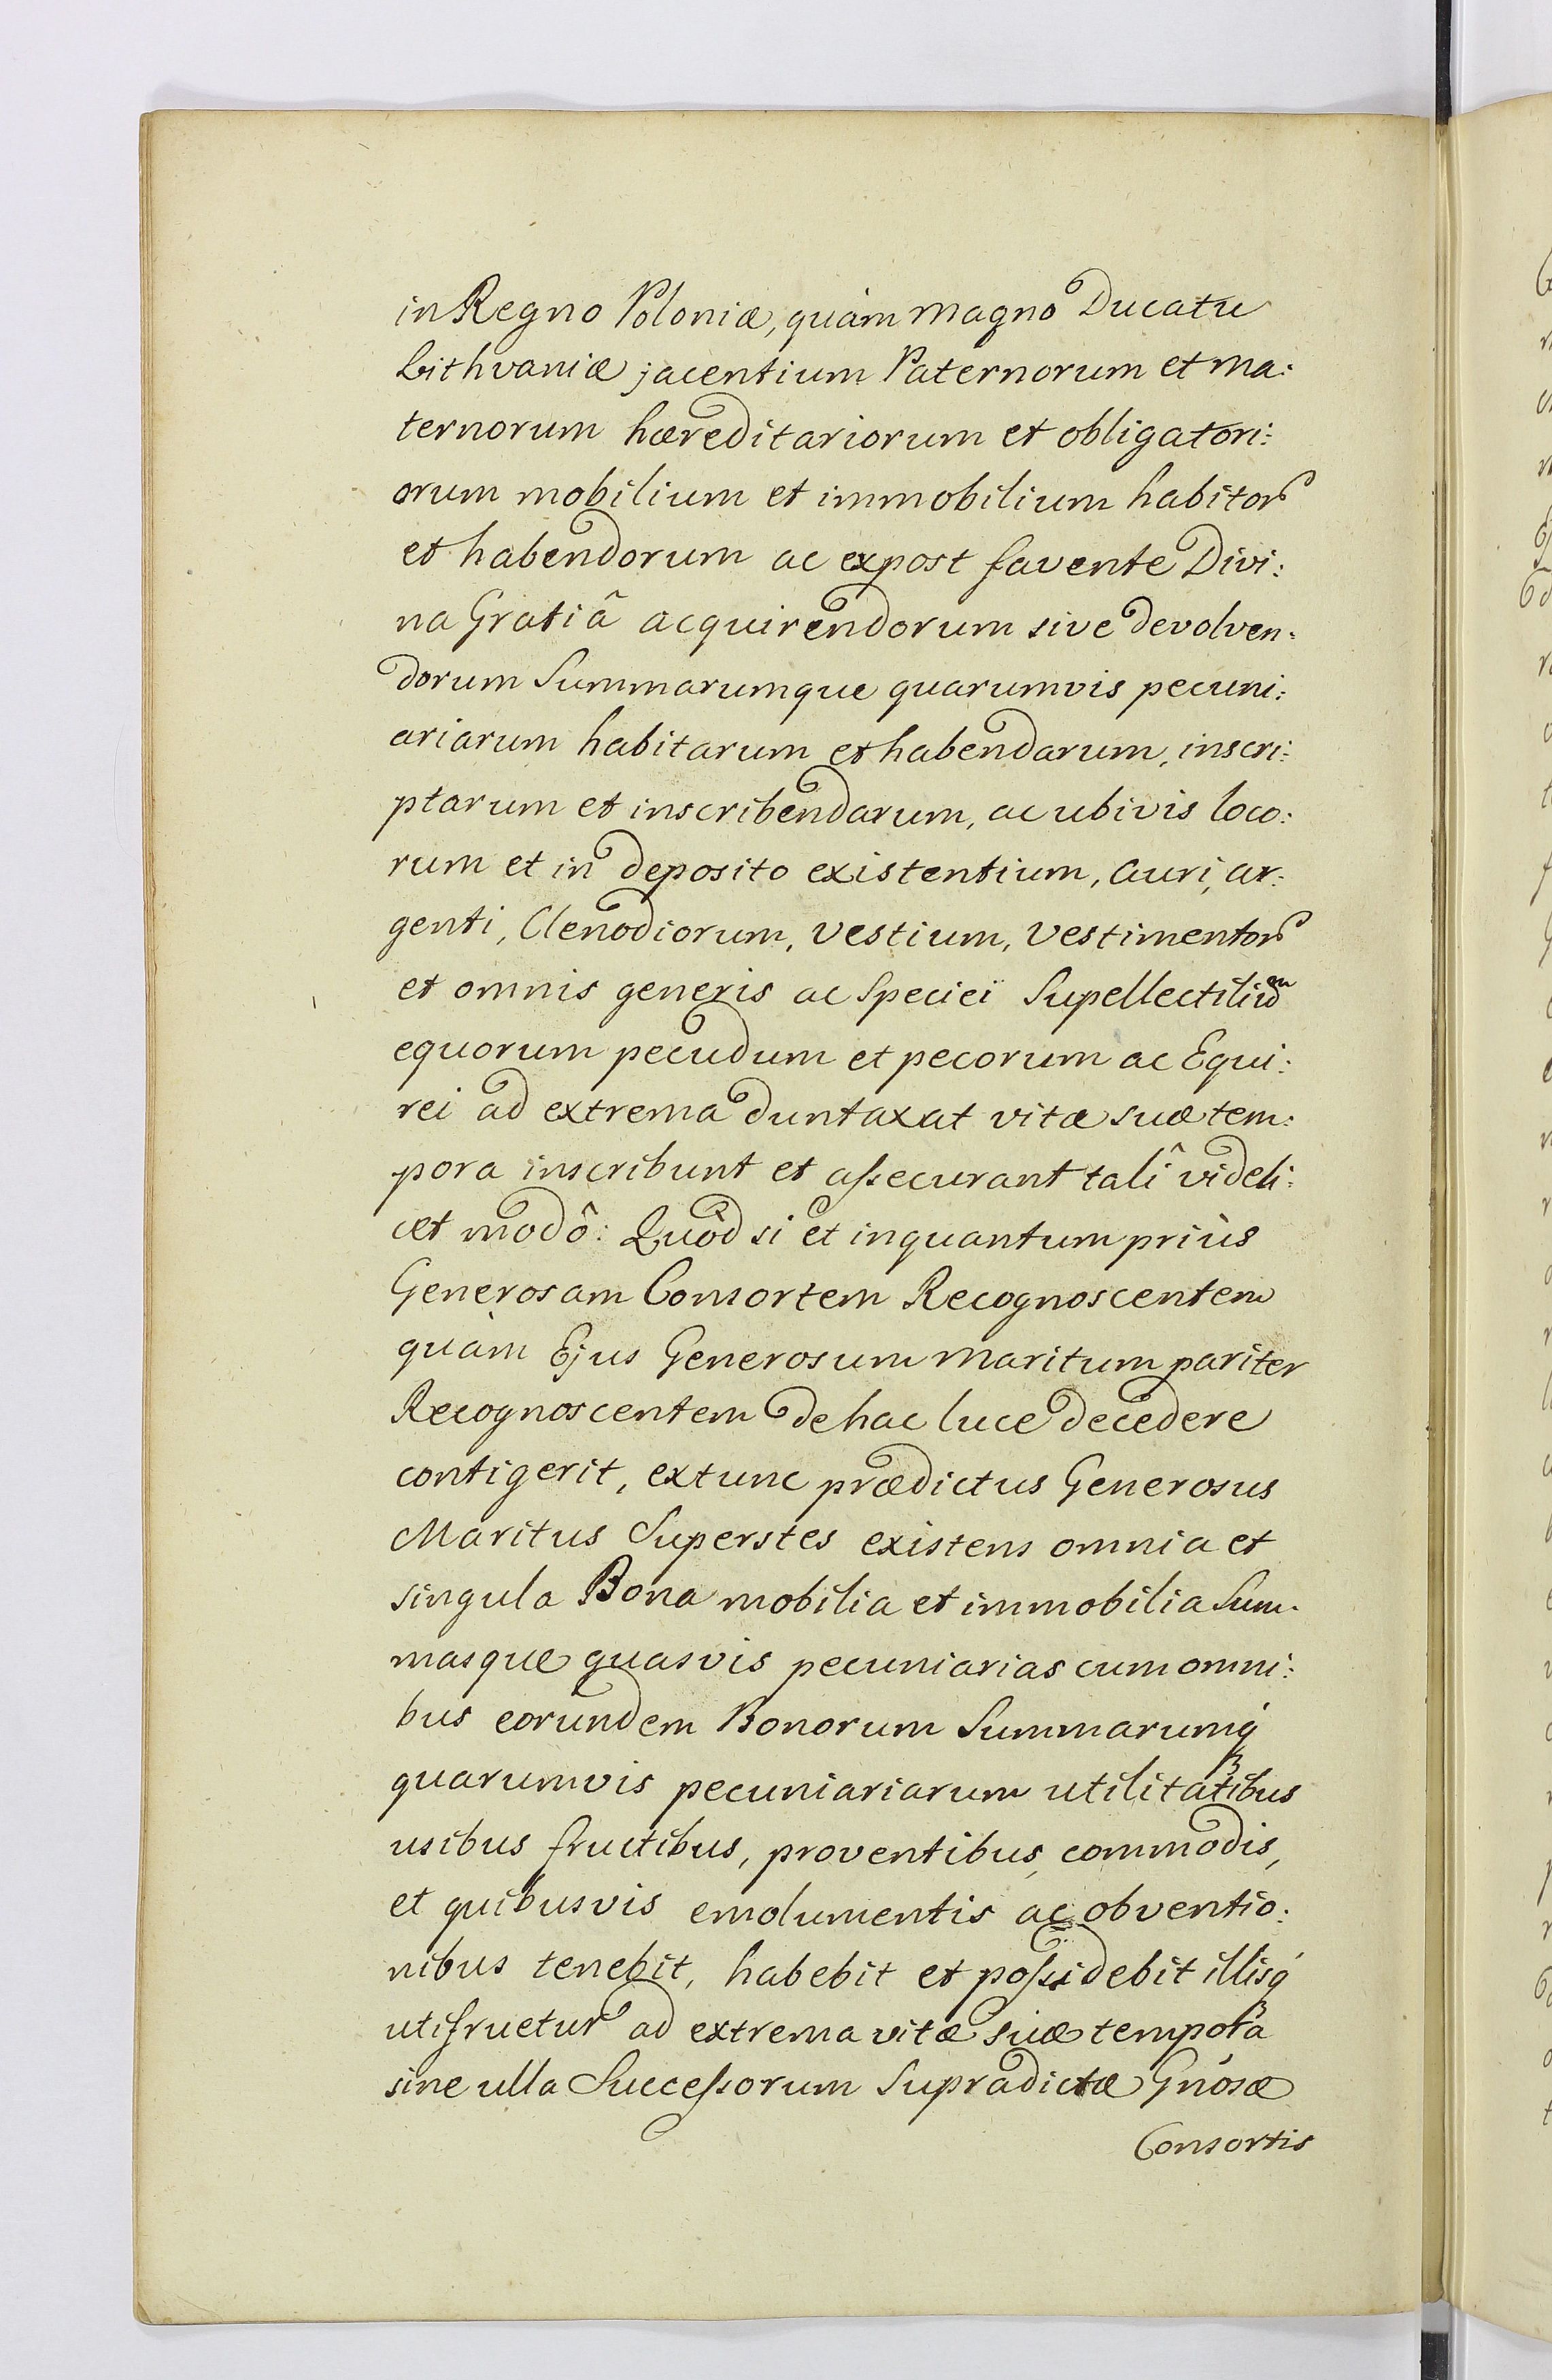 in Regno Poloniæ, quàm Magno Ducatu
Lithvaniæ jacentium Paternorum et Ma:
ternorum hæreditariorum et obligatori:
orum mobilium et immobilium habitor
et habendorum ac expost favente Divi:
na Gratiâ acquirendorum sive devolven:
dorum Summarumque quarumvis pecuni:
ariarum habitarum et habendarum, inscri:
ptarum et inscribendarum, ac ubivis loco:
rum et in deposito existentium, auri, ar:
genti, Clenodiorum, vestium, vestimentor
et omnis generis ac Speciei Supellectilium
equorum pecudum et pecorum ac Equi:
rei ad extrema duntaxat vitæ suæ tem:
pora inscribunt et aſsecurant talî videli:
cet modô: Quòd si et inquantum priùs
Generosam Consortem Recognoscentem
quàm Ejus Generosum Maritum pariter
Recognoscentem de hac luce decedere
contigerit, extunc prædictus Generosus
Maritus Superstes existens omnia et
singula Bona mobilia et immobilia Sum:
masque quasvis pecuniarias cum omni:
bus eorundem Bonorum Summarumq́
quarumvis pecuniariarum utilitatibus
usibus fructibus, proventibus, commodis,
et quibusvis emolumentis ac obventio:
nibus tenebit, habebit et poſsidebit illisq́
utifruetur ad extrema vitæ suæ tempora
sine ulla Succeſsorum Supradictæ Gnósæ
Consortis